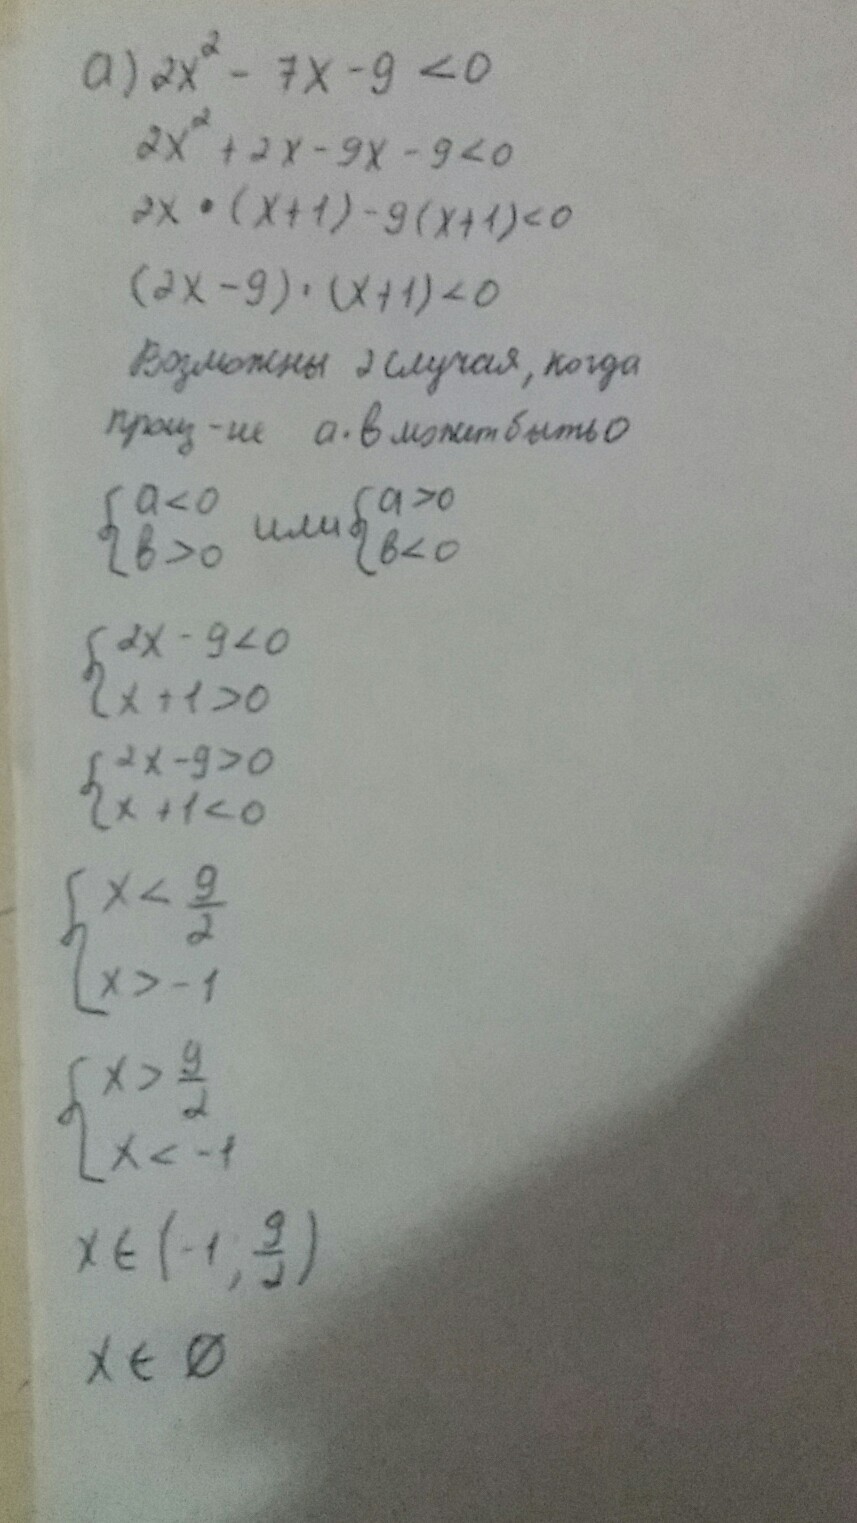 а) 2x² - 7x - 9 < 0
2x² + 2x - 9x - 9 < 0
2x • (x+1) - 9(x+1) < 0
(2x - 9) · (x+1) < 0
Возможны 2 случая, когда
произ-ие а·в может быть 0
{ а < 0 или { а > 0
{ в > 0 { в < 0
{ 2x - 9 < 0
{ x + 1 > 0
{ 2x - 9 > 0
{ x + 1 < 0
{ x < 9/2
{ x > -1
{ x > 9/2
{ x < -1
x ∈ (-1; 9/2)
x ∈ Ø